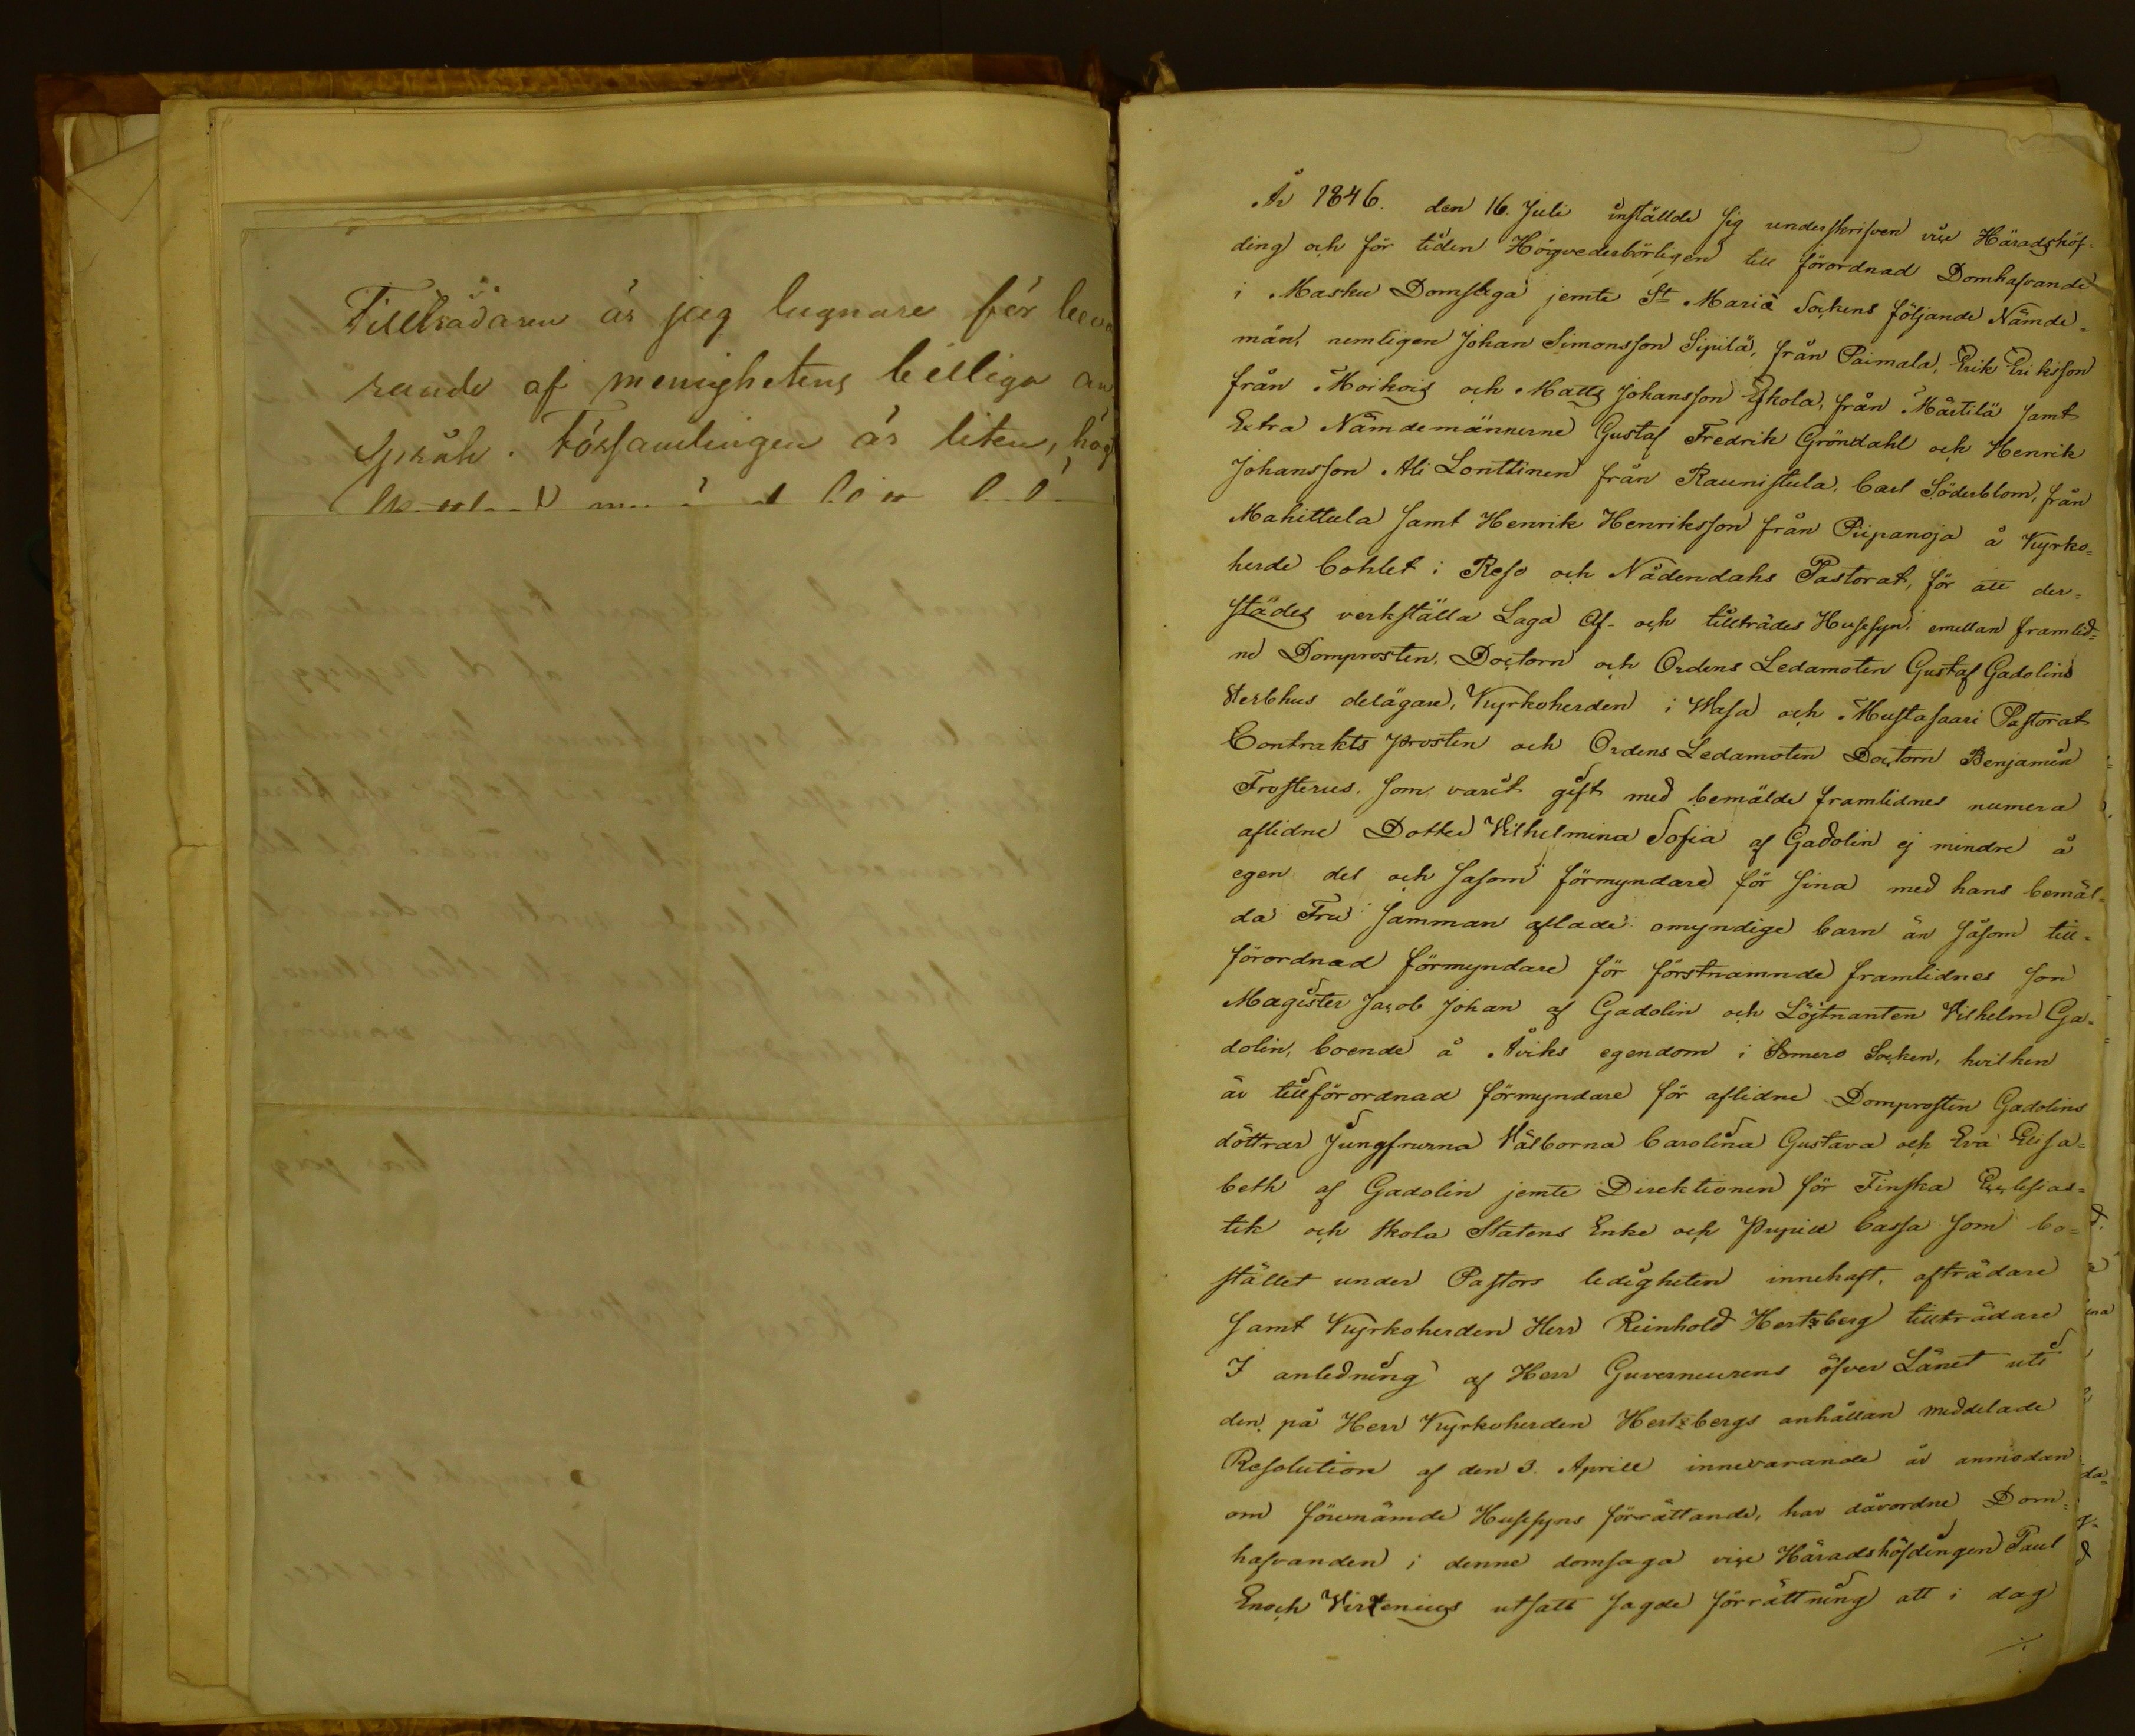 Tillträdaren är jag lugnare för beva
rande af menighetens billiga an
språk. Församlingen är liten, hög
År 1846. den 16. Juli inställde sig underskrifven vice Häradshöf-
ding och för tiden Högvederbörligen till förordnad Domhafvande
i Masku Domsaga jemte St Mariæ Sockens följande Nämde-
män, nemligen Johan Simonsson Sipilä, från Paimala, Erik Eriksson
från Moikois och Matts Johansson Eskola, från Märtilä samt
Extra Nämdemännerne Gustaf Fredrik Gröndahl och Henrik
Johansson Ali Lonttinen från Raunistula, Carl Söderblom, från
Mahittula samt Henrik Henriksson från Piipanoja å Kyrko-
herde Bohlet i Reso och Nådendahs Pastorat, för att der-
städes verkställa Laga Af- och tillträdes Husesyn, emellan framlid-
ne Domprosten, Doctorn och Ordens Ledamoten Gustaf Gadolins
Sterbhus delägare, Kyrkoherden i Wasa och Mustasaari Pastorat
Contrakts Prosten och Ordens Ledamoten Doctorn Benjamin
Frosterus, som varit gift med bemälde framlidnes numera
aflidne Dotter Vilhelmina Sofia af Gadolin ej mindre å
egen del och såsom förmyndare för sina med hans bemäl-
da Fru samman aflade omyndige barn än såsom till-
förordnad förmyndare för förstnamnde framlidnes son
Magister Jacob Johan af Gadolin och Löjtnanten Vilhelm Ga-
dolin, boende å Åviks egendom i Somero Socken, hvilken
är tillförordnad förmyndare för aflidne Domprosten Gadolins
döttrar Jungfrurna Välborna Carolina Gustava och Eva Elisa-
beth af Gadolin jemte Direktionen för Finska Ecclesias-
tik och Skola Statens Enke och Pupill Cassa som bo-
stället under Pastors ledigheten innehaft, afträdare
samt Kyrkoherden Herr Reinhold Hertzberg tillträdare
I anledning af Herr Guverneurens öfver Länet uti
den på Herr Kyrkoherden Hertzbergs anhållan meddelade
Resolution af den 3. Aprill innevarande år anmodan
om förenämde Husesyns förrättande, har dåvordne Dom-
hafvanden i denne domsaga vice Häradshöfdingen Paul
Enoch Virzenius utsatt sagde förrättning att i dag